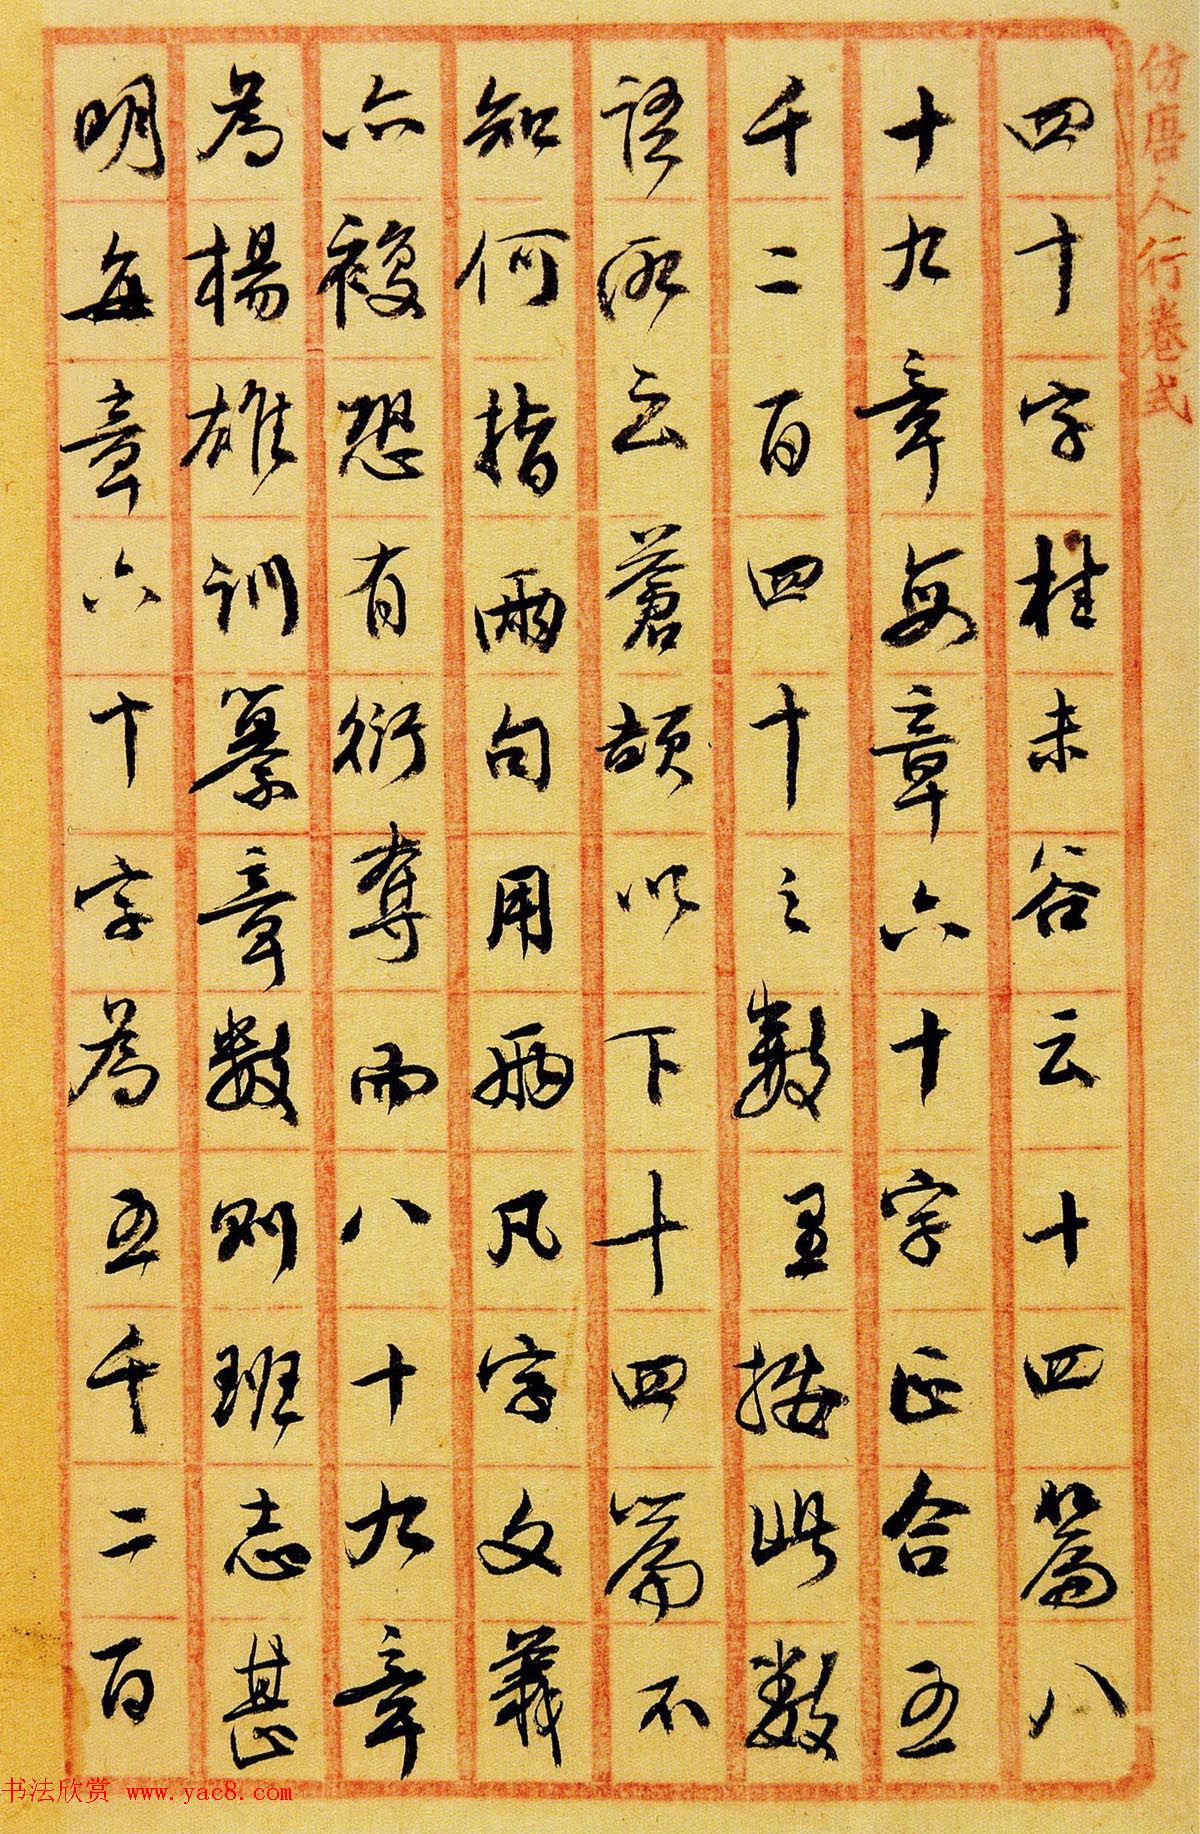 仿唐人行卷式
四十字桂未谷云十四篇八
十九章每章六十字正合五
千二百四十之數按此數
語所云蒼頡以下十四篇不
知何指兩句用兩凡字文義
亦複恐有衍奪而八十九章
為楊雄訓纂章數則班志甚
明每章六十字為五千二百
书法欣赏 www.yac8.com